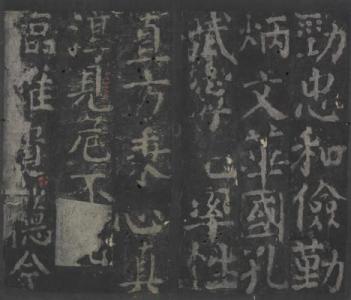 勁忠和儉勤
炳文華國孔
武己率性
直方秉心真
淇見危不
臨難德令